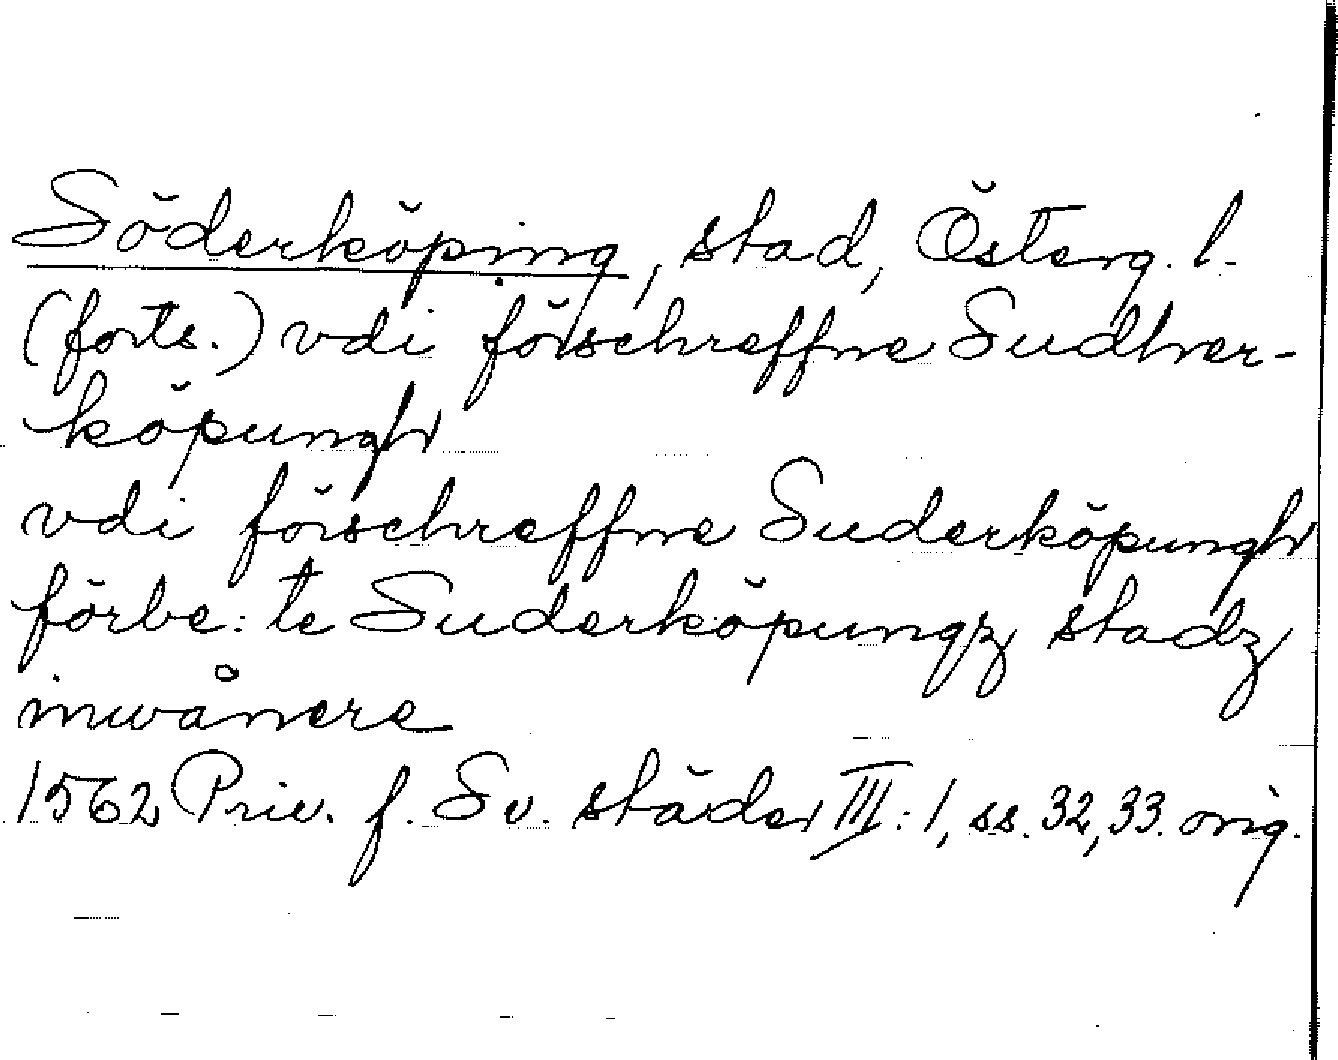 Söderköping, stad, Österg. l.
(forts.) vdi förschreffne Sudher-
köpungh
vdi förschreffne Suderköpungh
förbe:te Suderköpungz stadz
inwånere
1562 Priv. f. Sv. städer III:1, ss. 32, 33. orig.